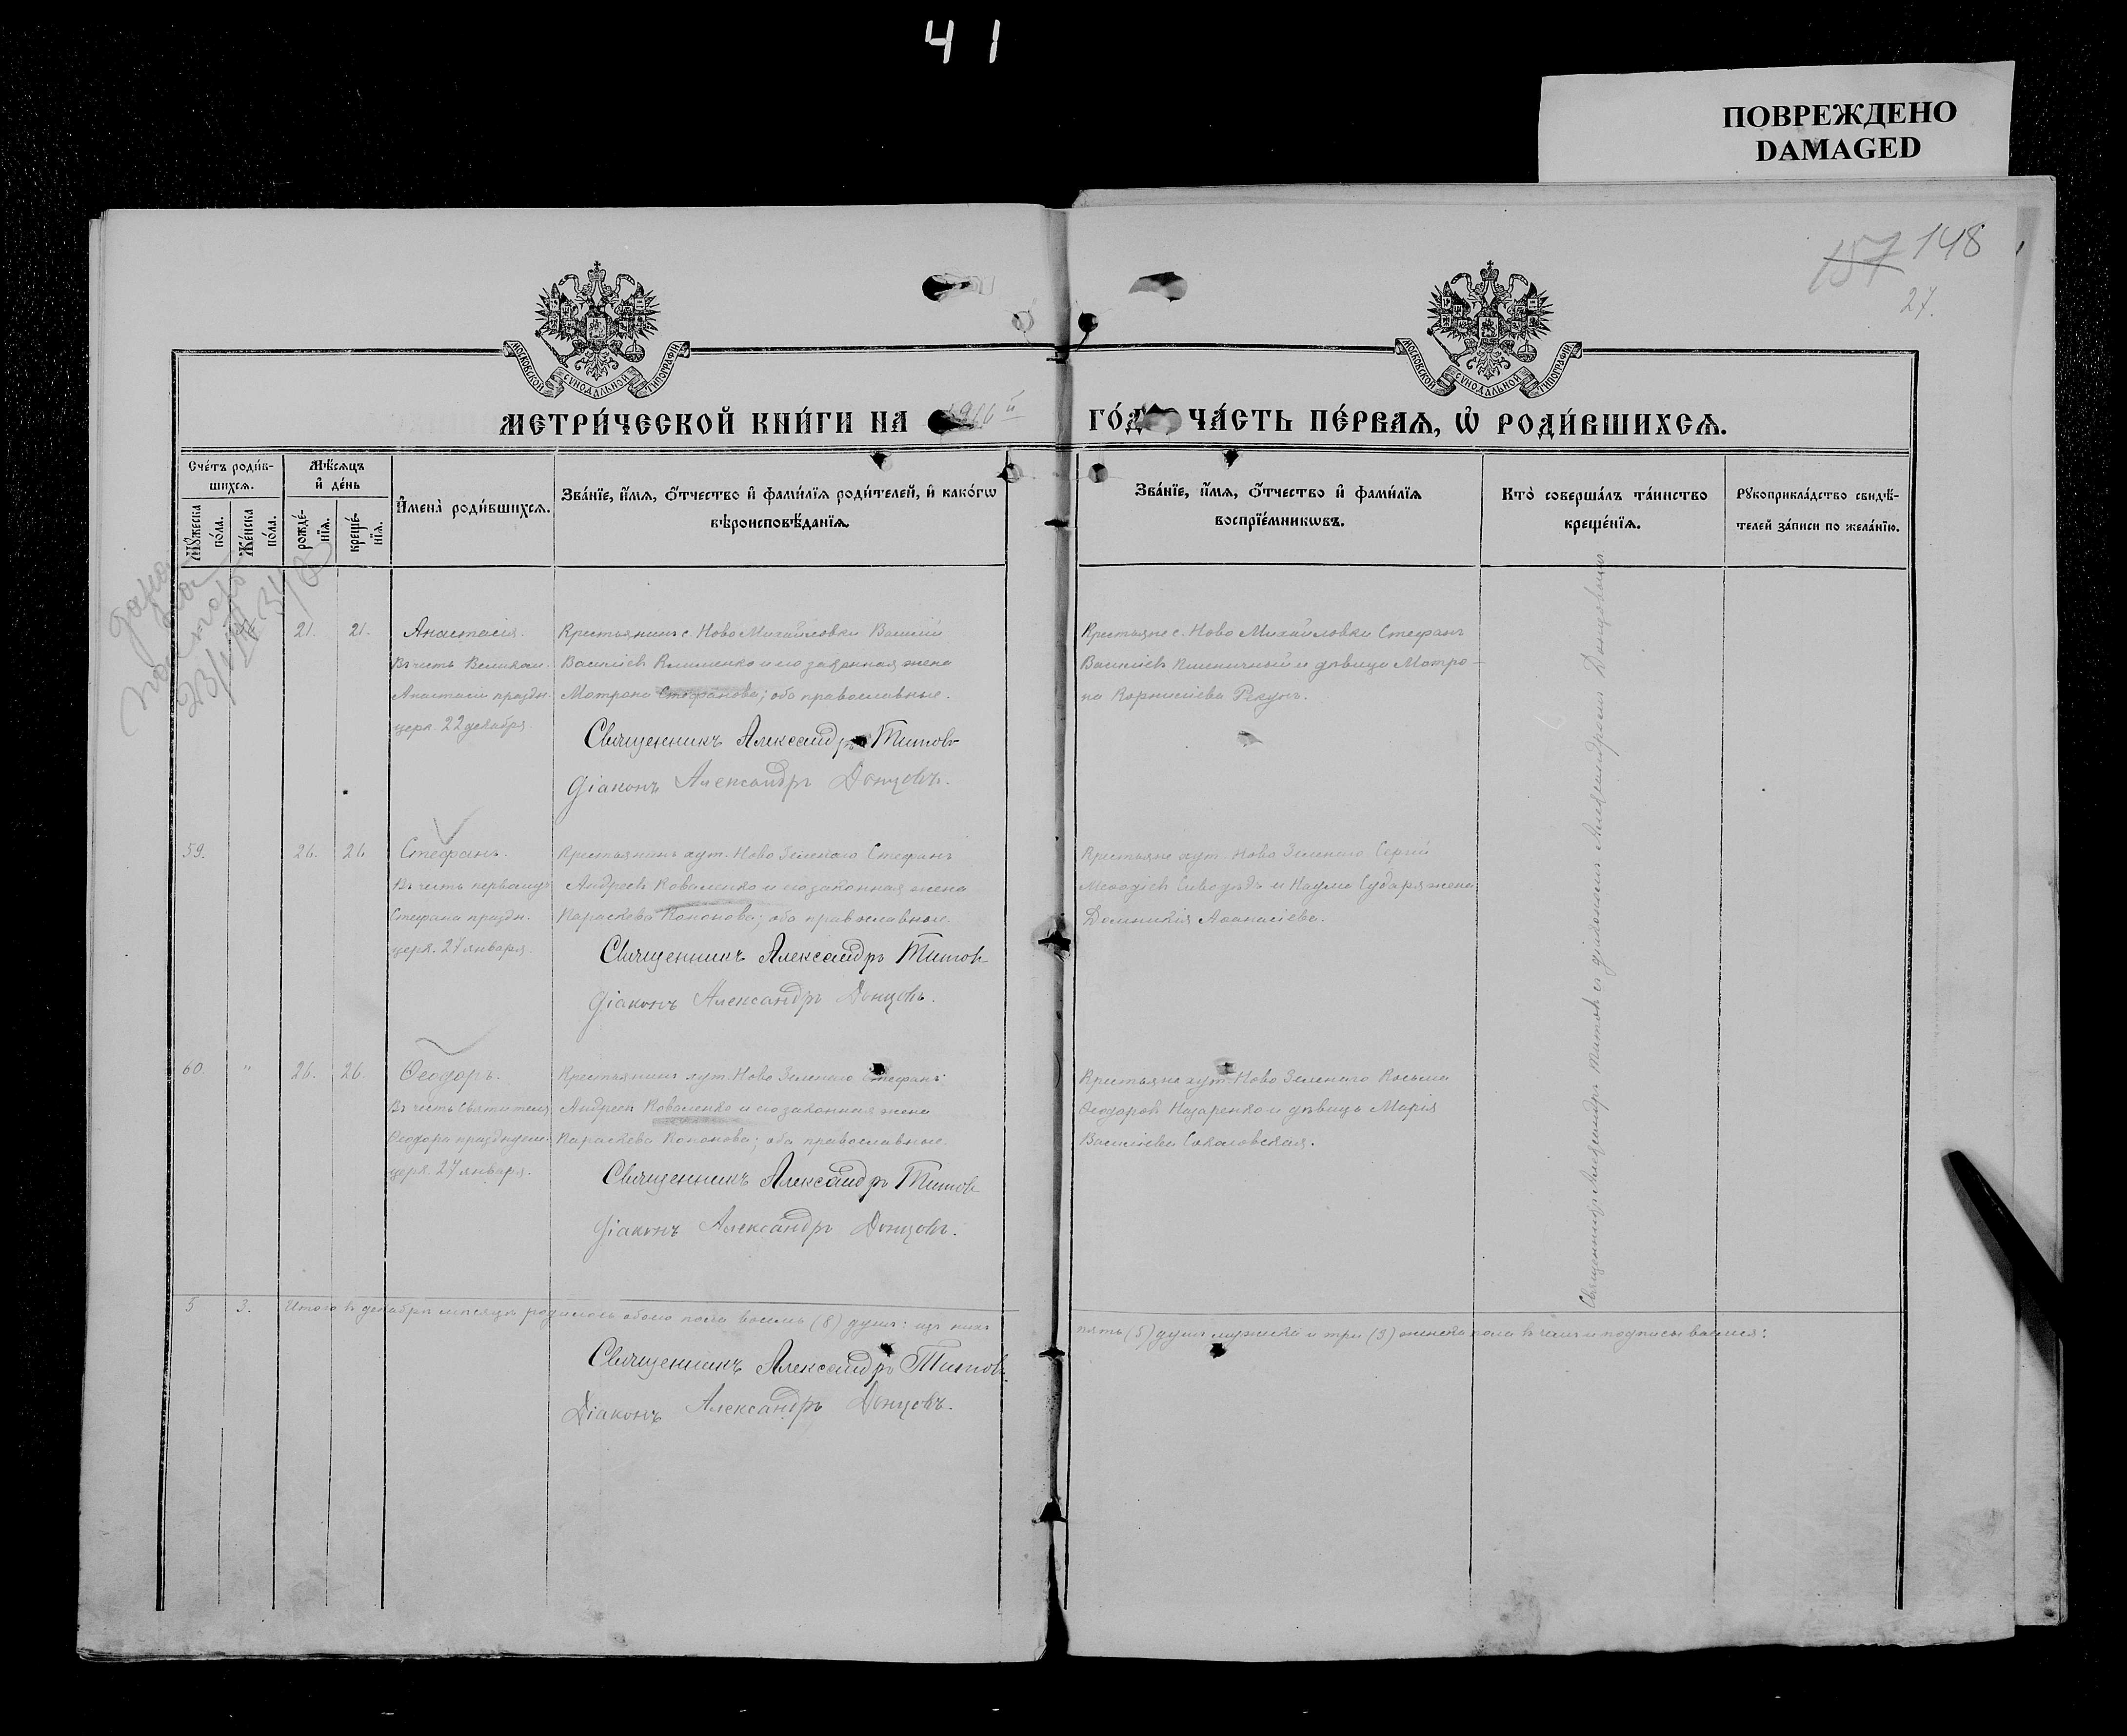 41
ПОВРЕЖДЕНО
DAMAGED
157 148
27.
МОСКОВСКОЙ СѴНОДАЛЬНОЙ ТИПОГРАФІИ
МОСКОВСКОЙ СѴНОДАЛЬНОЙ ТИПОГРАФІИ
МЕТРИ́ЧЕСКОЙ КНИ́ГИ НА
ЧА́СТЬ ПЕ́РВАЯ, Ѡ҆ РОДИ́ВШИХСѦ.
Сче́тъ роди́в-
шихсѧ.
Мꙋ́жеска по́ла.
Же́нска по́ла.
Мѣ́сѧцъ
и҆ де́нь
рожде́-
нїѧ.
креще́-
нїѧ.
И҆мена̀ роди́вшихсѧ.
Зва́нїе, и҆́мѧ, ѻ҆́тчество и҆ фами́лїѧ роди́телей, и҆ како́гѡ
вѣроисповѣ́данїѧ.
Зва́нїе, и҆́мѧ, ѻ҆́тчество и҆ фами́лїѧ
воспрїе́мникѡвъ.
Кто̀ соверша́лъ та́инство
креще́нїѧ.
Рꙋкоприкла́дство свидѣ́-
телей за́писи по жела́нїю.
21. 21. Анастасія.
Въ честь Великом.
Анастасіи праздн.
церк. 22 декабря.
Крестьянинъ с. Ново Михайловки Василій
Василіевъ Клименко и его законная жена
Матрона Стефанова; оба православные.
Священникъ Александръ Титовъ
Діаконъ Александръ Донцовъ.
Крестьяне с. Ново Михайловки Стефанъ
Василіевъ Пшеничный и дѣвица Матро-
на Корниліева Рекунъ.
59. 26. 26 Стефанъ.
Въ честь первомуч.
Стефана праздн.
церк. 27 января.
Крестьянинъ хут. Ново Зеленаго Стефанъ
Андреевъ Коваленко и его законная жена
Параскева Кононова; оба православные.
Священникъ Александръ Титовъ
Діаконъ Александръ Донцовъ.
Крестьяне хут. Ново Зеленаго Сергій
Меѳодіевъ и Наума Сударя жена
Домникія Аѳанасіева.
60. " 26. 26. Ѳеодоръ.
Въ честь Святителя
Ѳеодора празднуем.
церк. 27 января.
Крестьянинъ хут. Ново Зеленаго Стефанъ
Андреевъ Коваленко и его законная жена
Параскева Кононова; оба православные.
Священникъ Александръ Титовъ
Діаконъ Александръ Донцовъ.
Крестьяне хут. Ново Зеленаго Косьма
Ѳеодоровъ Назаренко и дѣвица Марія
Василіева Соколовская.
Священникъ Александръ Титовъ съ діакономъ Александромъ Донцовымъ
5 3. Итого въ декабрѣ мѣсяцѣ родилось обоего пола восемь (8) душъ: изъ нихъ
пять (5) душъ мужска и три (3) женска пола въ чемъ и подписываемся:
Священникъ Александръ Титовъ
Діаконъ Александръ Донцовъ.